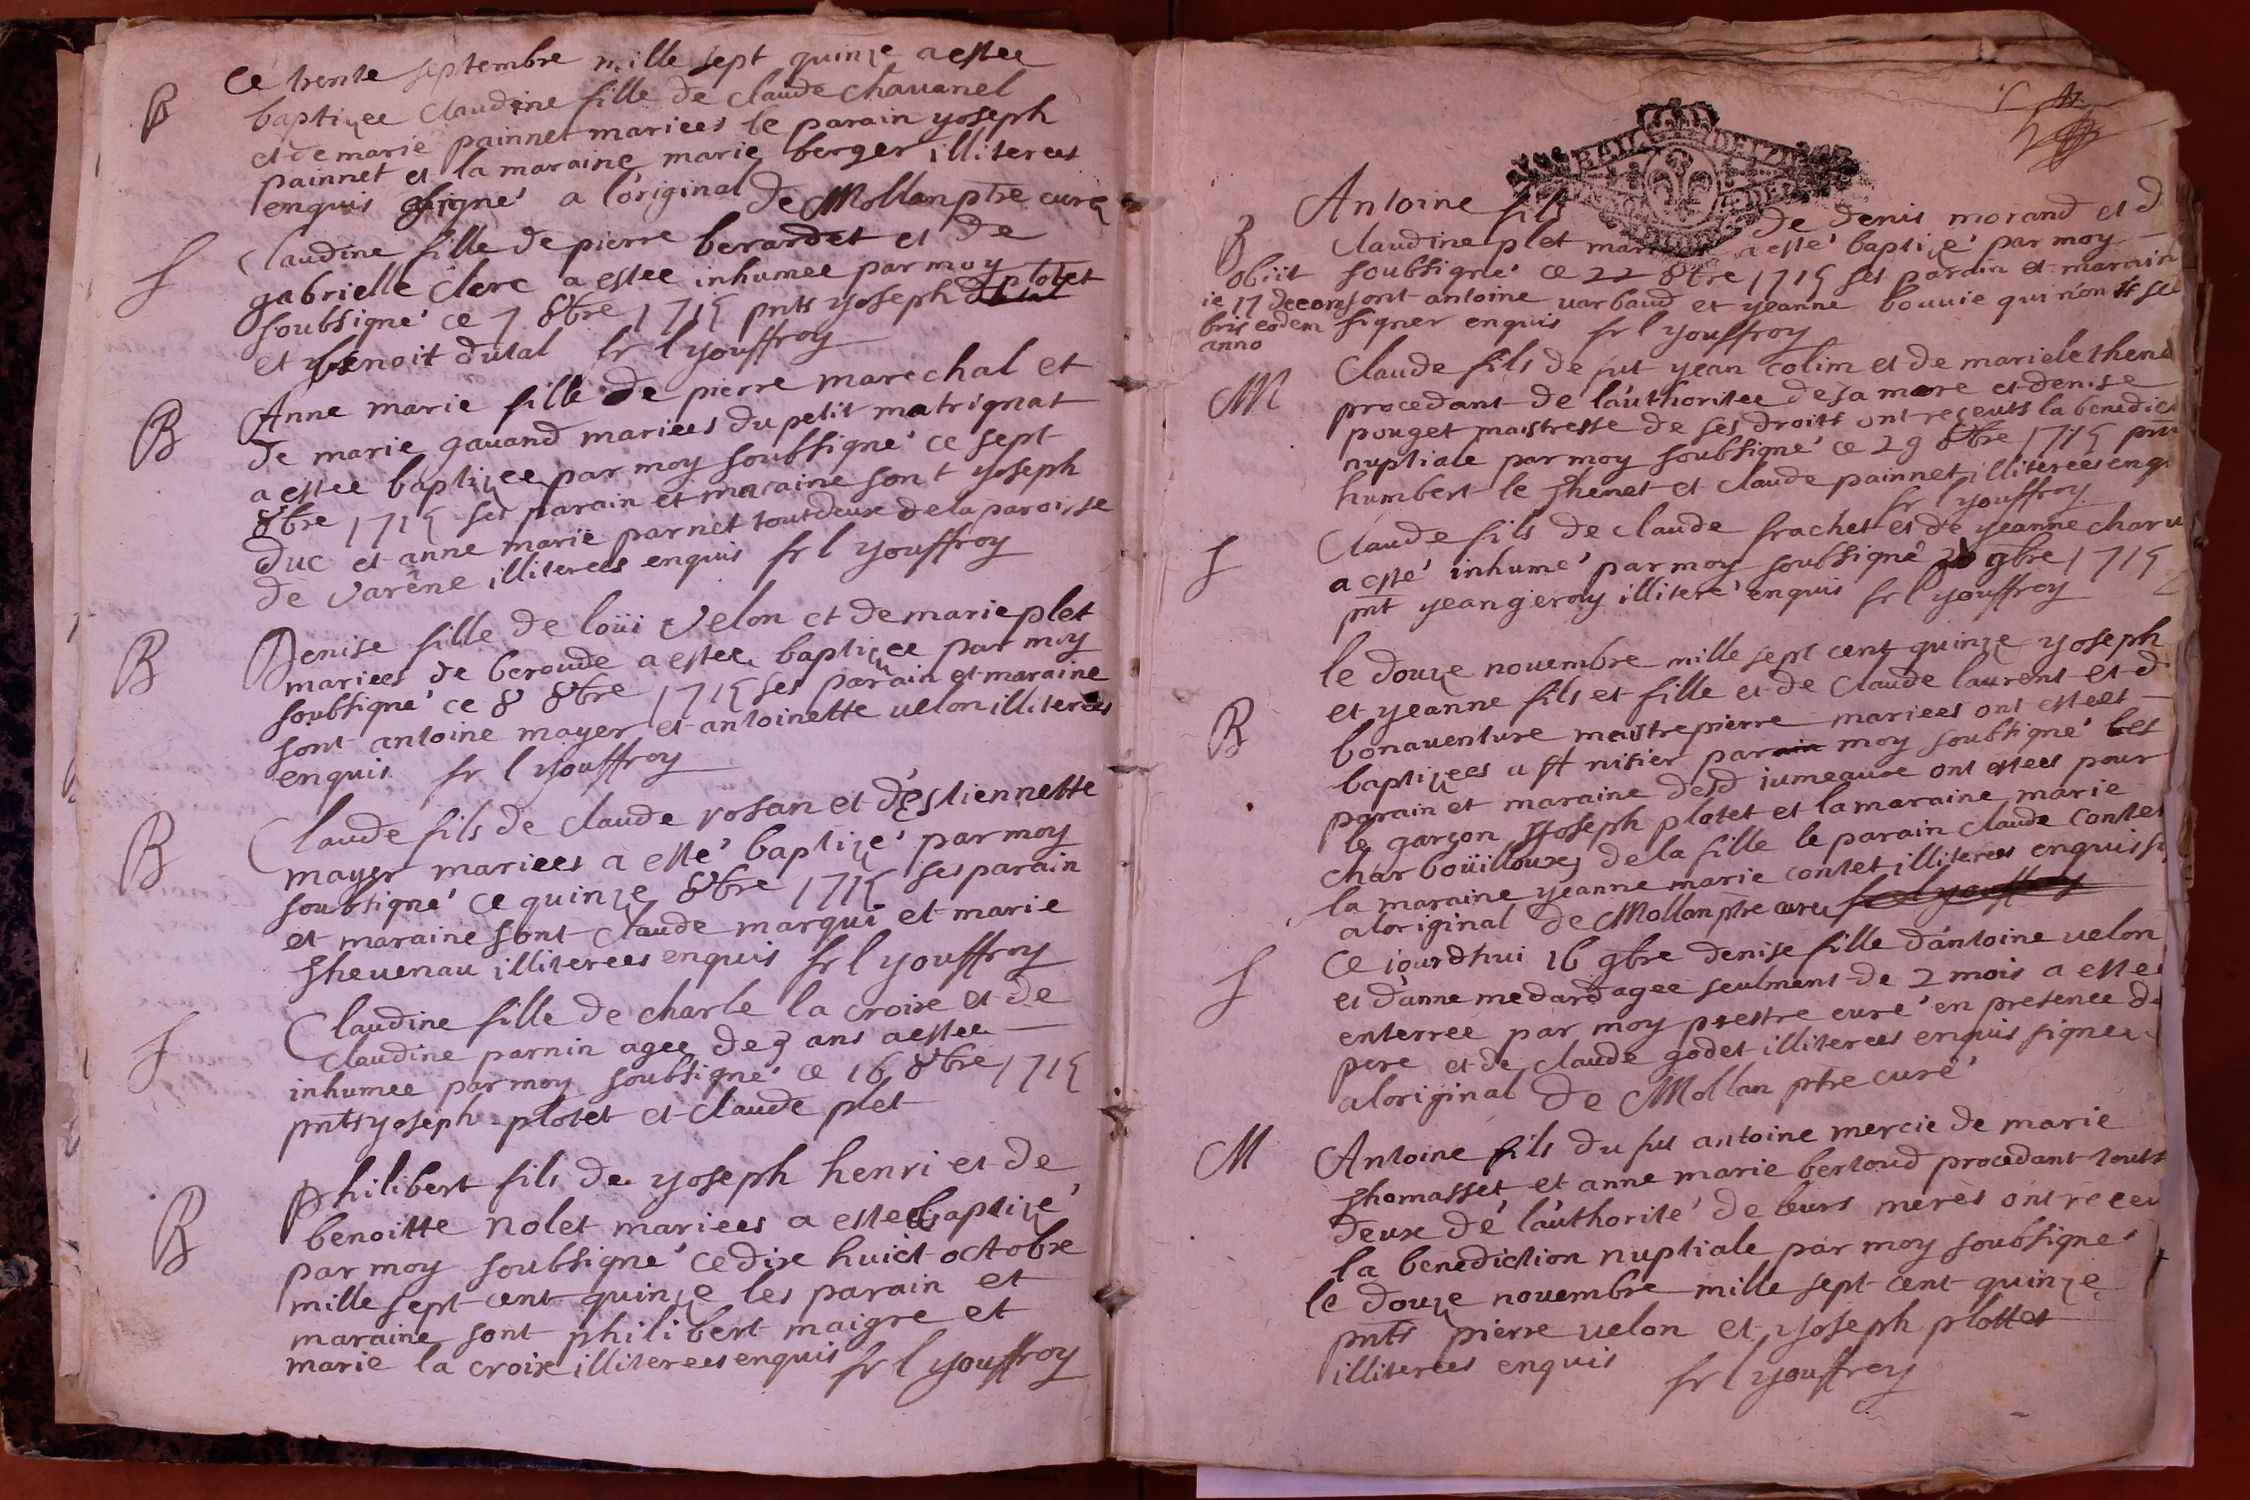 B
Ce trente septembre mille sept quinze a estee
baptizee Claudine fille de claude chavanel
et de marie painnet mariees le parain yoseph
painnet et la maraine marie berger illiterees
enquis signé a loriginal de Mollan ptre curé
f
Claudine fille de pierre berardet et de
gabrielle clerc a estee inhumee par moy
soubsigné ce 7 8bre 1715 pnts yoseph plotet
et benoit dutal fr l youffroy
B
Anne marie fille de pierre marechal et
de marie gavand mariees du petit matrignat
a estee baptizee par moy soubsigné ce sept
8bre 1715 ses parain et maraine sont yoseph
duc et anne marie parnet tout deux de la paroisse
de varêne illiterees enquis fr l youffroy
B
Denise fille de loüi velon et de marie plet
mariees de beroude a estee baptizee par moy
soubsigné ce 8 8bre 1715 ses parain et maraine
sont antoine mayer et antoinette velon illiterees
enquis fr l youffroy
B
Claude fils de claude rosan et d'estiennette
mayer mariees a esté baptizé par moy
soubsigné ce quinze 8bre 1715 ses parain
et maraine sont claude marqui et marie
thevenau illiterees enquis fr l youffroy
f
Claudine fille de charle la croix et de
claudine parnin agee de 3 ans a estee
inhumee par moy soubsigné ce 16 8bre 1715
pnts yoseph plotet et claude plet
B
Philibert fils de yoseph henri et de
benoitte nolet mariees a estee baptizé
par moy soubsigné ce dix huict octobre
mille sept cent quinze les parain et
maraine sont philibert maigre et
marie la croix illiterees enquis fr l youffroy
B
Antoine fils de denis morand et d
Claudine plet a esté baptizé par moy
obiit soubsigné ce 22 8bre 1715 ses parain et marain
ie 17 decem sont antoine varbaud et yeanne bouvie qui n'on sc
bris eodem signer enquis fr l youffroy
anno
M
Claude fils de fut yean colin et de marie lethen
procedant de l'authoritee de sa mere et denise
pouget maistresse de ses droits ont receuts la benedict
nuptiale par moy soubsigné ce 29 8bre 1715 pnt
humbert le thenet et claude painnet illiterees enqu
fr l youffroy
f
Claude fils de claude frachet et de yeanne charv
a esté inhumé par moy soubsigné 9bre 1715
pnt yean gerny illiteré enquis fr l youffroy
B
le douze novembre mille sept cent quinze yoseph
et yeanne fils et fille et de Claude laurent et d
bonaventure maistrepierre mariees ont estees
baptizees a st nisier par moy soubsigné les
parain et maraine desd jumeaux ont estees pour
le garçon yoseph plotet et la maraine marie
charboüilloux, de la fille le parain claude contet
la maraine yeanne marie contet illiterees enquis si
a loriginal de Mollan ptre curé fr l youffroy
f
Ce jourdhui 16 9bre denise fille d'antoine velon
et d'anne medard agee seulment de 2 mois a estee
enterree par moy prestre curé en presence d
pere et de claude godet illiterees enquis signe
a loriginal de Mollan ptre curé
M
Antoine fils du fut antoine mercie de marie
thomasset et anne marie bertoud procedant touts
deux de l'authorité de leurs meres ont receu
la benediction nuptiale par moy soubsigné
le douze novembre mille sept cent quinze
pnts pierre velon et yoseph plottet
illiterees enquis fr l youffroy